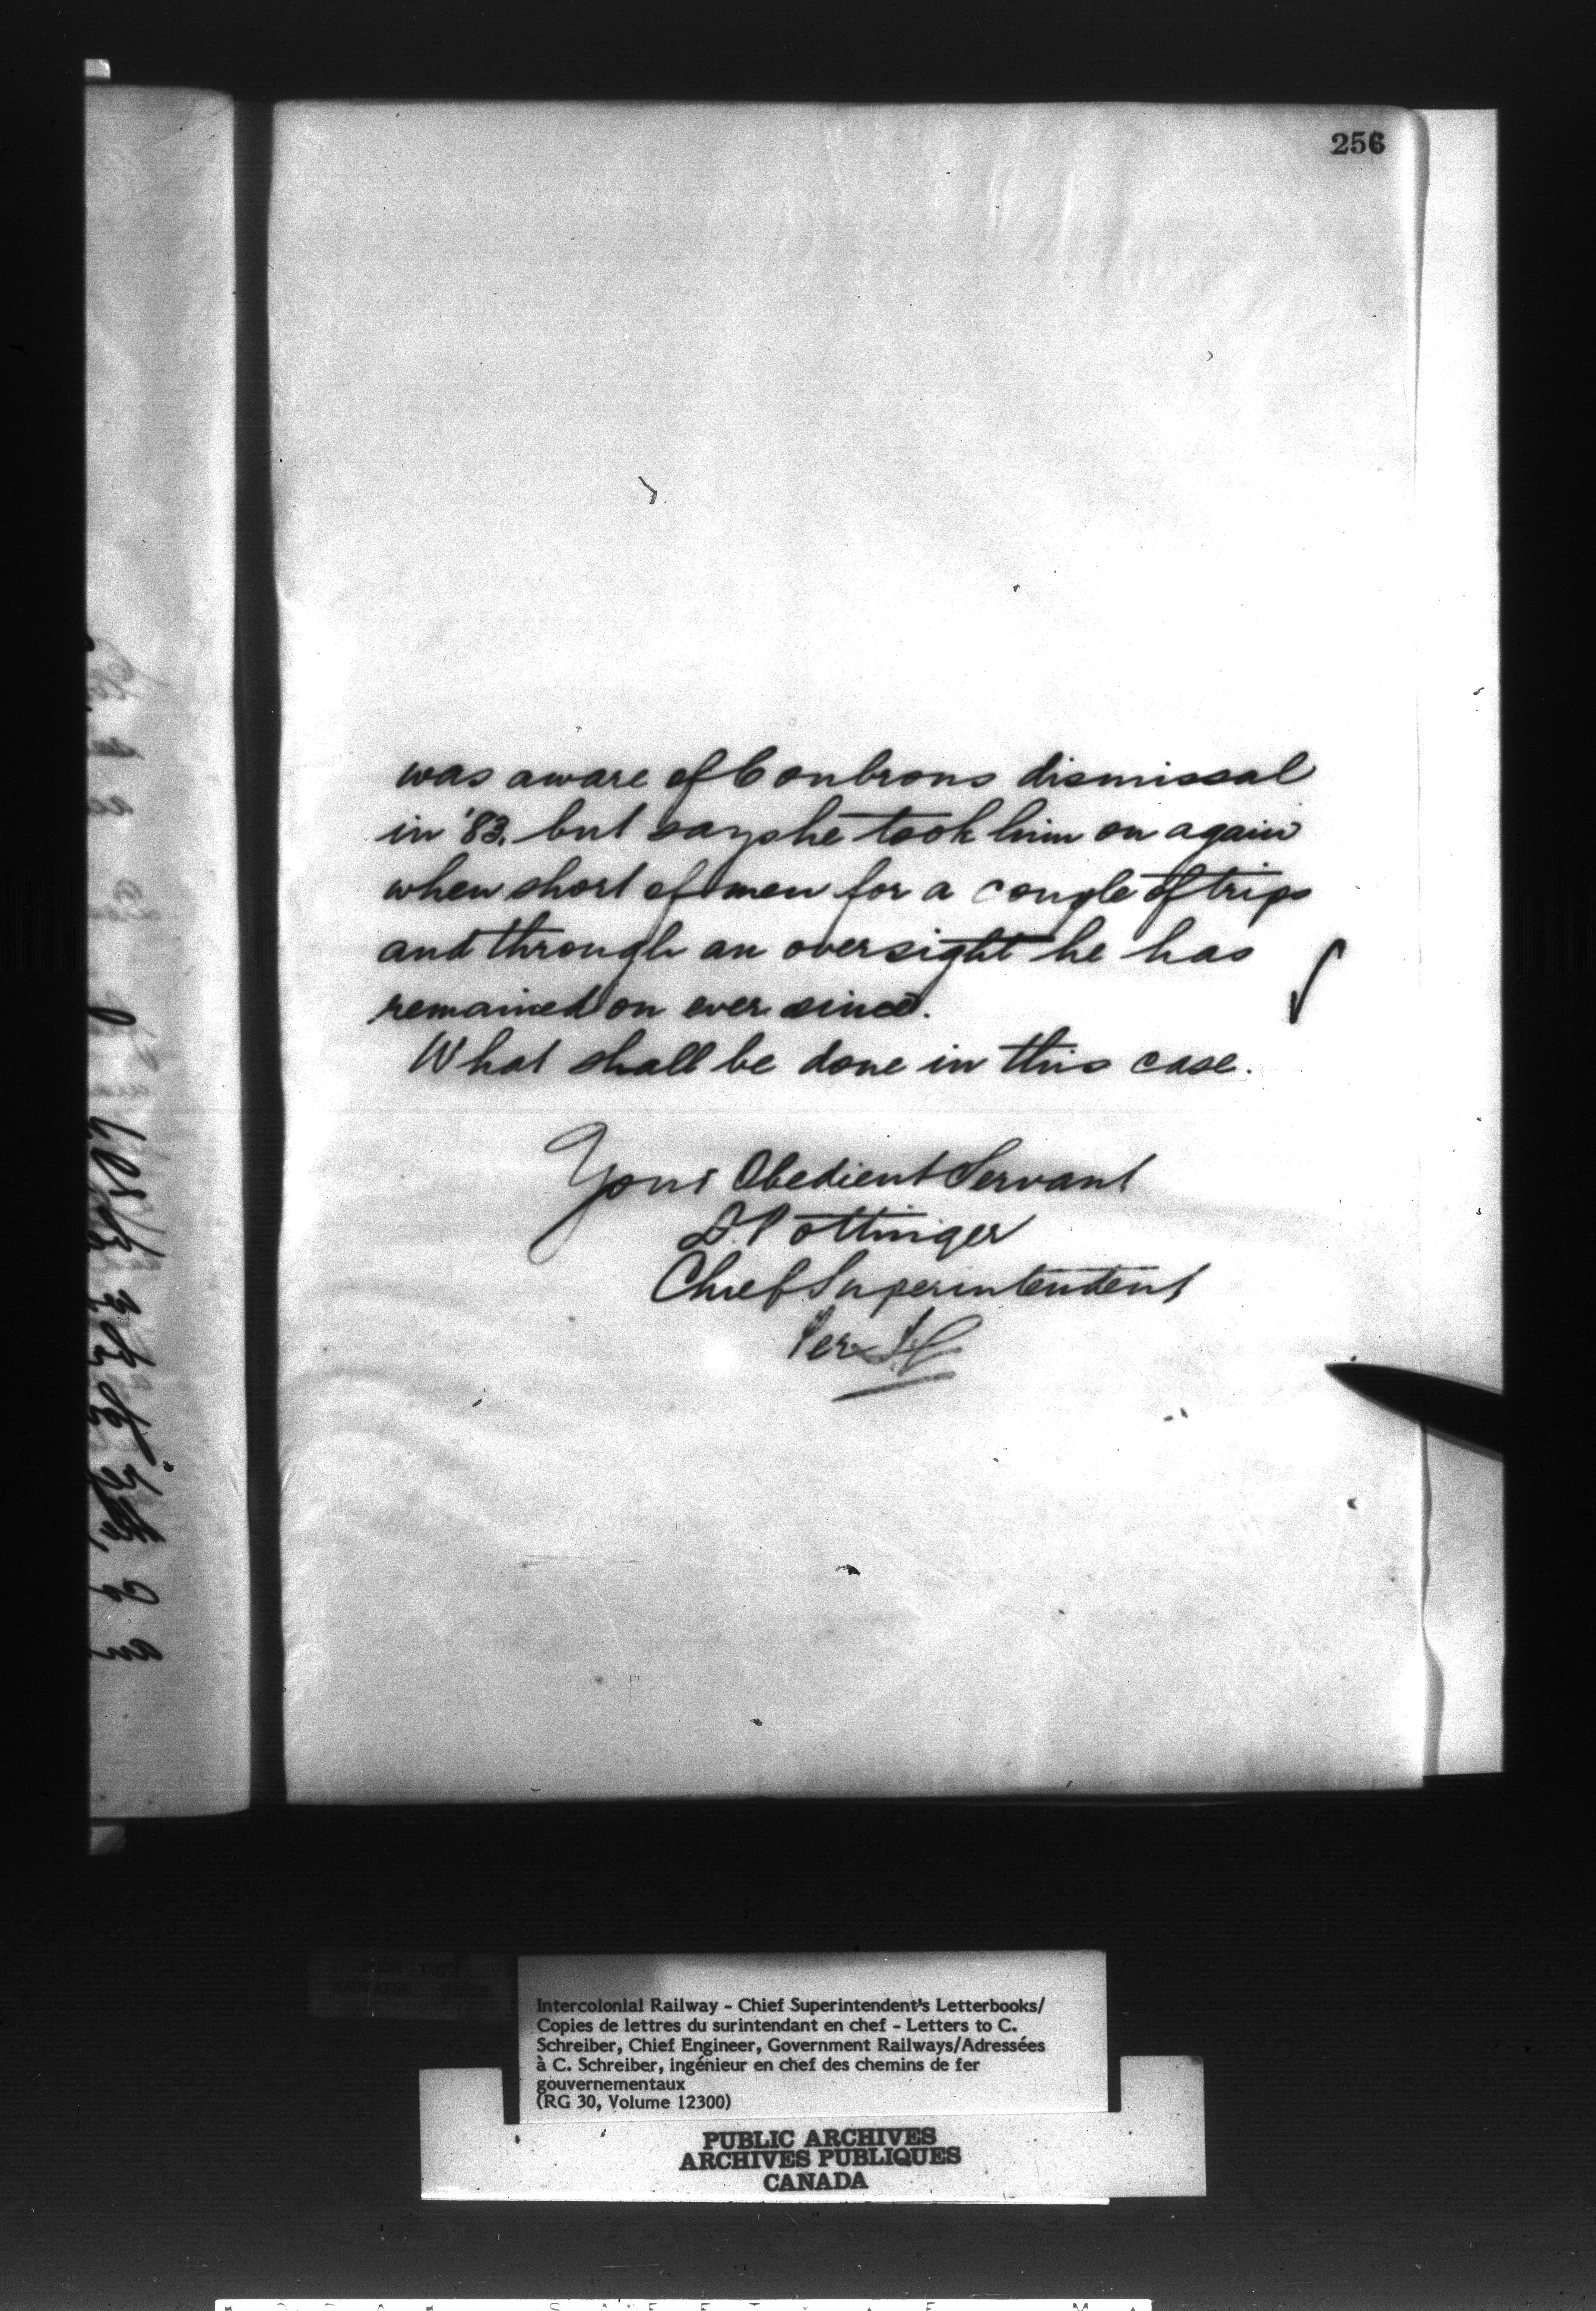 256
was aware of Conbrons dismissal
in '83. but says he took him on again
when short of men for a couple of trips
and through an oversight he has
remained on ever since.
What shall be done in this case.
Your Obedient Servant
D. Pottinger
Chief Superintendent
Per
Intercolonial Railway - Chief Superintendent's Letterbooks/
Copies de lettres du surintendant en chef - Letters to C.
Schreiber, Chief Engineer, Government Railways/Adressées
à C. Schreiber, ingénieur en chef des chemins de fer
gouvernementaux
(RG 30, Volume 12300)
PUBLIC ARCHIVES
ARCHIVES PUBLIQUES
CANADA